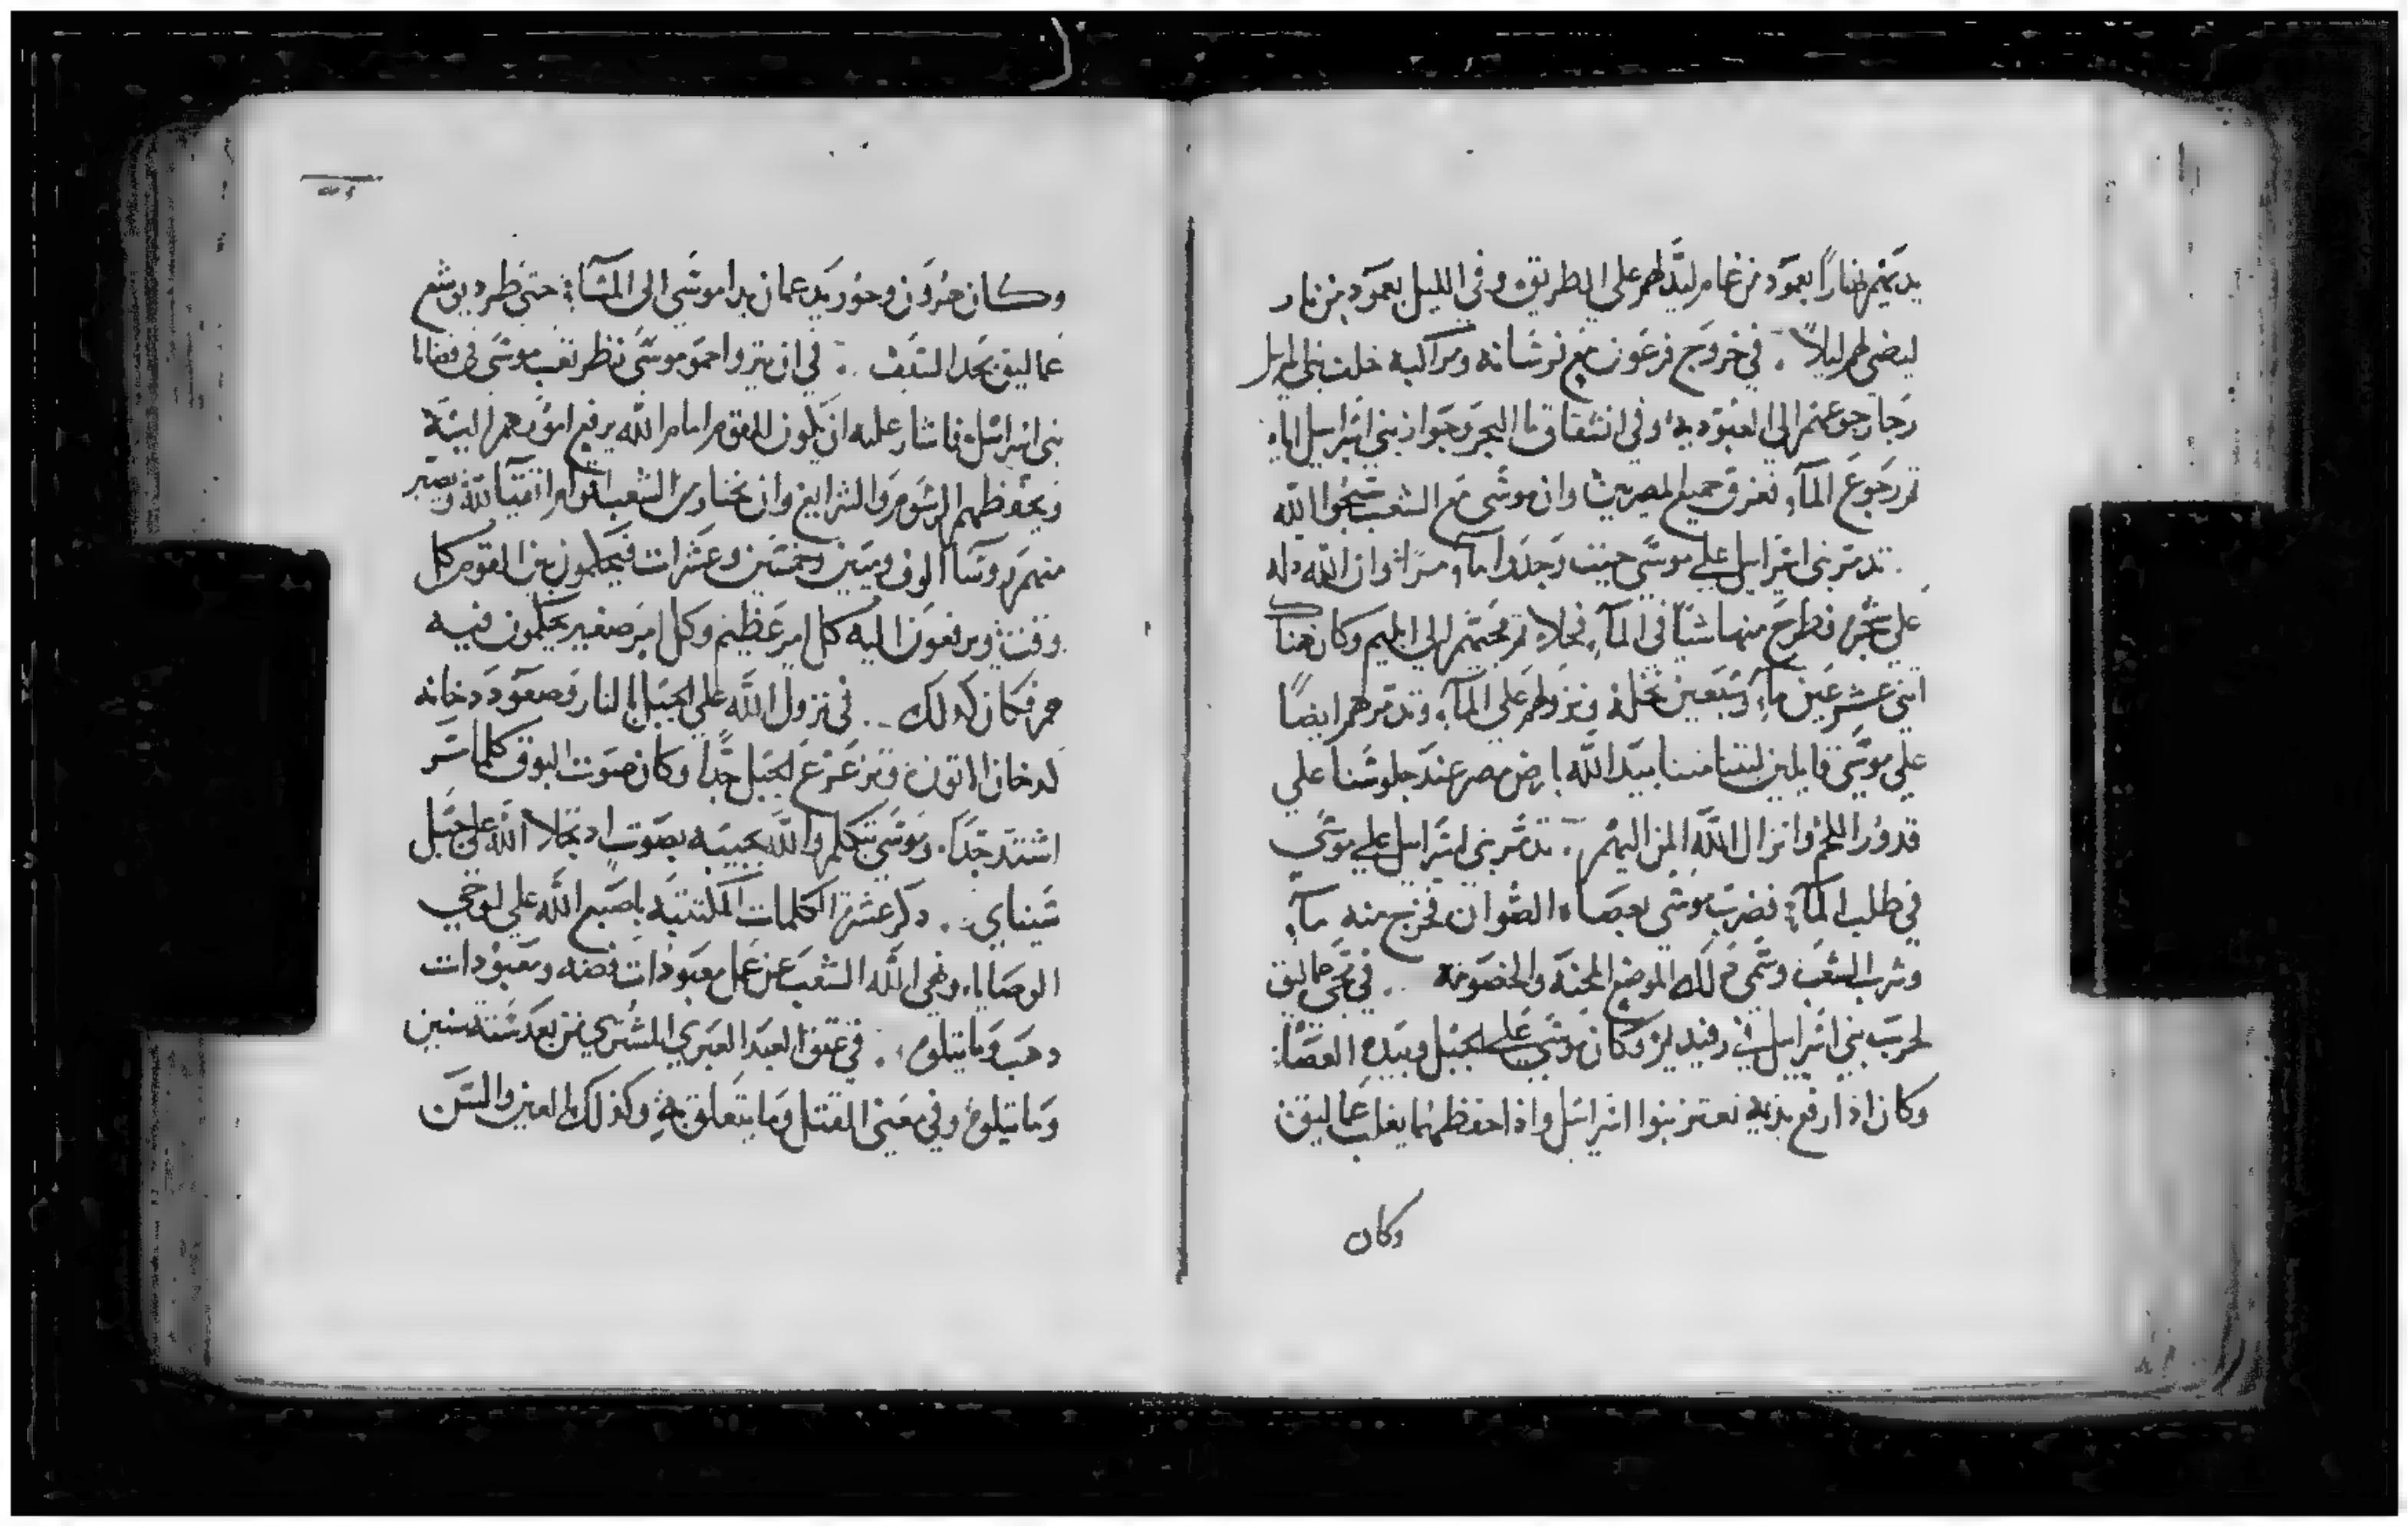 يديهم نهارًا بعمود من غمام ليدلهم على الطريق وفي الليل بعمود من نار
ليضي لهم ليلاً . في خروج فرعون مع فرسانه ومراكبه خلف بني اسرايل
رجا رجوعهم الى العبودية وفي انشقاق ما البحر وجواز بني اسراييل اياه
ثم رجوع المآء فغرق جميع المصريين وان موسى مع الشعب سبحوا الله
. تدمر بني اسراييل على موسى حيث وجدوا مآء مرًا وان الله دله
على شجره فطرح منها شيًا في المآء فحلا ثم مجيهم الى ايليم وكان هناك
اثني عشر عين مآء وسبعين نخله ونزولهم على المآء وتدمرهم ايضًا
على موسى قايلين ليتنا متنا بيد الله بارض مصر عند جلوسنا على
قدور اللحم وانزال الله المن اليهم . تدمر بني اسراييل على موسى
في طلب المآء فضرب موسى بعصاه الصوان فخرج منه مآء
وشرب الشعب وسمى ذلك الموضع المحنه والخصومه .. في مجي عماليق
لحرب بني اسراييل في رفيديم وكان موسى على الجبل وبيده العصا
وكان اذا رفع يديه تعتز بنوا اسراييل واذا احفظهما يغلب عماليق
وكان
وكان هرون وحور يدعمان يدا موسى الى المسآء حتى طرد يوشع
عماليق بحد السيف .. في ان يثروا حمو موسى نظر تعب موسى في قضايا
بني اسراييل فاشار عليه ان يكون للقوم امام الله يرفع امورهم اليه
ويحفظهم الرسوم والشرايع وان يختار من الشعب اتقيآ لله ويصير
منهم روسآ الوف وميين وخمسين وعشرات فيحكمون بين القوم كل
وقت ويرفعون اليه كل امر عظيم وكل امر صغير يحكمون فيه
هم فكان كذلك .. في نزول الله على الجبل بالنار وصعود دخانه
كدخان الاتون وتزعزع الجبل جدًا وكان صوت البوق كلما مر
اشتد جدًا . وموسى يتكلم والله يجيبه بصوت اد تجلا الله على جبل
سيناي .. دكر عشرة الكلمات المكتتبه باصبع الله على لوحي
الوصايا . ونهي الله الشعب عن عمل معبودات فضه ومعبودات
دهب وما يتلوه . في عتق العبد العبري المشتري من بعد ستة سنين
وما يتلوه وفي معنى القتل وما يتعلق به وكذلك العين والسن